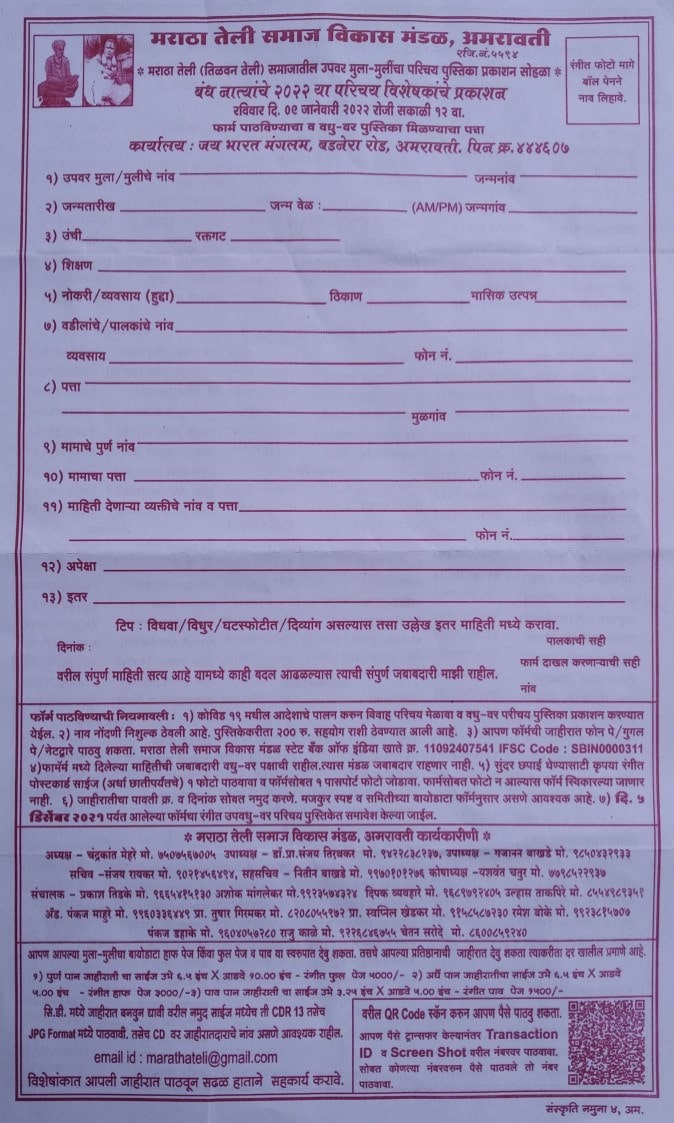 मराठा तेली समाज विकास मंडळ, अमरावती
रजि.नं.५५९४
* मराठा तेली (तिळवन तेली) समाजातील उपवर मुला-मुलींचा परिचय पुस्तिका प्रकाशन सोहळा *
बंध नात्यांचे २०२२ या परिचय विशेषकांचे प्रकाशन
रविवार दि. ०९ जानेवारी २०२२ रोजी सकाळी १२ वा.
रंगीत फोटो मागे
बॉल पेनने
नाव लिहावे.
फार्म पाठविण्याचा व वधु-वर पुस्तिका मिळण्याचा पत्ता
कार्यालय : जय भारत मंगलम, बडनेरा रोड, अमरावती. पिन क्र.४४४६०७
१) उपवर मुला/मुलीचे नांव जन्मनांव
२) जन्मतारीख जन्म वेळ : (AM/PM) जन्मगांव
३) उंची रक्तगट
४) शिक्षण
५) नोकरी/व्यवसाय (हुद्दा) ठिकाण मासिक उत्पन्न
७) वडीलांचे/पालकांचे नांव
व्यवसाय फोन नं.
८) पत्ता
मुळगांव
९) मामाचे पुर्ण नांव
१०) मामाचा पत्ता फोन नं.
११) माहिती देणाऱ्या व्यक्तीचे नांव व पत्ता
फोन नं.
१२) अपेक्षा
१३) इतर
टिप : विधवा/विधुर/घटस्फोटीत/दिव्यांग असल्यास तसा उल्लेख इतर माहिती मध्ये करावा.
दिनांक : पालकाची सही
वरील संपुर्ण माहिती सत्य आहे यामध्ये काही बदल आढळल्यास त्याची संपुर्ण जबाबदारी माझी राहील.
फार्म दाखल करणाऱ्याची सही
नांव
फॉर्म पाठविण्याची नियमावली : १) कोविड १९ मधील आदेशाचे पालन करुन विवाह परिचय मेळावा व वधु-वर परीचय पुस्तिका प्रकाशन करण्यात
येईल. २) नाव नोंदणी निशुल्क ठेवली आहे. पुस्तिकेकरीता २०० रु. सहयोग राशी ठेवण्यात आली आहे. ३) आपण फॉर्मची जाहीरात फोन पे/गुगल
पे/नेटद्वारे पाठवु शकता. मराठा तेली समाज विकास मंडळ स्टेट बँक ऑफ इंडिया खाते क्र. 11092407541 IFSC Code : SBIN0000311
४)फार्मम मध्ये दिलेल्या माहितीची जबाबदारी वधु-वर पक्षाची राहील.त्यास मंडळ जबाबदार राहणार नाही. ५) सुंदर छपाई घेण्यासाटी कृपया रंगीत
पोस्टकार्ड साईज (अर्धा छातीपर्यंतचे) १ फोटो पाठवावा व फॉर्मसोबत १ पासपोर्ट फोटो जोडावा. फार्मसोबत फोटो न आल्यास फॉर्म स्विकारल्या जाणार
नाही. ६) जाहीरातीचा पावती क्र. व दिनांक सोबत नमुद करणे. मजकुर स्पष्ट व समितीच्या बायोडाटा फॉर्मनुसार असणे आवश्यक आहे. ७) दि. ५
डिसेंबर २०२१ पर्यत आलेल्या फॉर्मचा रंगीत उपवधु-वर परिचय पुस्तिकेत समावेश केल्या जाईल.
* मराठा तेली समाज विकास मंडळ, अमरावती कार्यकारीणी *
अध्यक्ष - चंद्रकांत मेहरे मो. ७५०७५६७००५ उपाध्यक्ष - डॉ.प्रा.संजय तिरथकर मो. ९४२२८३८२३७, उपाध्यक्ष - गजानन बाखडे मो. ९८५०४३२९३३
सचिव -संजय रायकर मो. ९०२१४५६४९४, सहसचिव - नितीन बाखडे मो. ९९७०१०१२७६ कोषाध्यक्ष -यशवंत चतुर मो. ७७९८५२२९३७
संचालक - प्रकाश तिडके मो. ९६६५४१५१३० अशोक मांगलेकर मो.९९२३५७४३२४ दिपक व्यवहारे मो. ९६८९७९२४०५ उल्हास ताकपिरे मो. ८५५४९८९३५१
अॅड. पंकज माहुरे मो. ९९६०३३६४४९ प्रा. तुषार गिरमकर मो. ८२०८०५५१७२ प्रा. स्वप्निल खेडकर मो. ९१५८५८७२३० रमेश बोके मो. ९९२३८१५७०७
पंकज डहाके मो. ९६०४०५७२८० राजु काळे मो. ९२२६८४६७५५ चेतन सरोदे मो. ८६००८५९२४०
आपण आपल्या मुला-मुलीचा बायोडाटा हाफ पेज किंवा फुल पेज व पाव या स्वरुपात देवु शकता. तसचे आपल्या प्रतिष्ठानाची जाहीरात देवु शकता त्याकरीता दर खालील प्रमाणे आहे.
१) पुर्ण पान जाहीराती चा साईज उमे ६.५ इंच X आडवे १०.०० इंच - रंगीत फुल पेज ५०००/- २) अर्धे पान जाहीरातीचा साईज उमे ६.५ इंच X आडवे
५.०० इंच - रंगीत हाफ पेज ३०००/-३) पाव पान जाहीराती चा साईज उमे ३.२५ इंच X आडवे ५.०० इंच - रंगीत पाव पेज १५००/-
सि.डी. मध्ये जाहीरात बनवुन द्यावी वरील नमुद साईज मध्येच ती CDR 13 तसेच
JPG Format मध्ये पाठवावी. तसेच CD वर जाहीरातदाराचे नांव असणे आवश्यक राहील.
email id : marathateli@gmail.com
विशेषांकात आपली जाहीरात पाठवून सढळ हाताने सहकार्य करावे.
वरील QR Code स्कॅन करुन आपण पैसे पाठवु शकता.
आपण पैसे ट्रान्सफर केल्यानंतर Transaction
ID व Screen Shot वरील नंबरवर पाठवावा.
सोबत कोणत्या नंबरवरुन पैसे पाठवले तो नंबर
पाठवावा.
संस्कृति नमुना ४, अम.